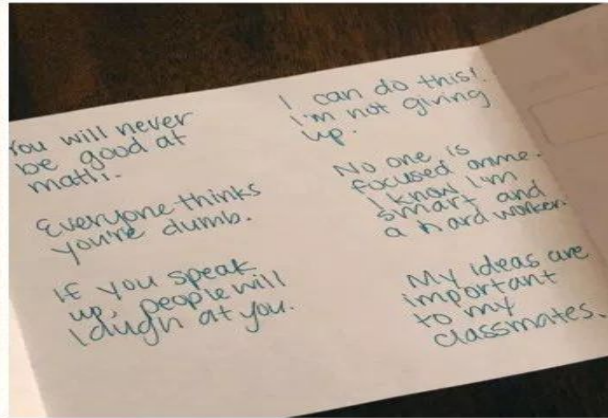 You will never
be good at
math.
Everyone thinks
you're dumb.
If you speak
up, people will
laugh at you.
I can do this!
I'm not giving
up.
No one is
focused on me.
I know I'm
smart and
a hard worker.
My ideas are
important
to my
classmates.